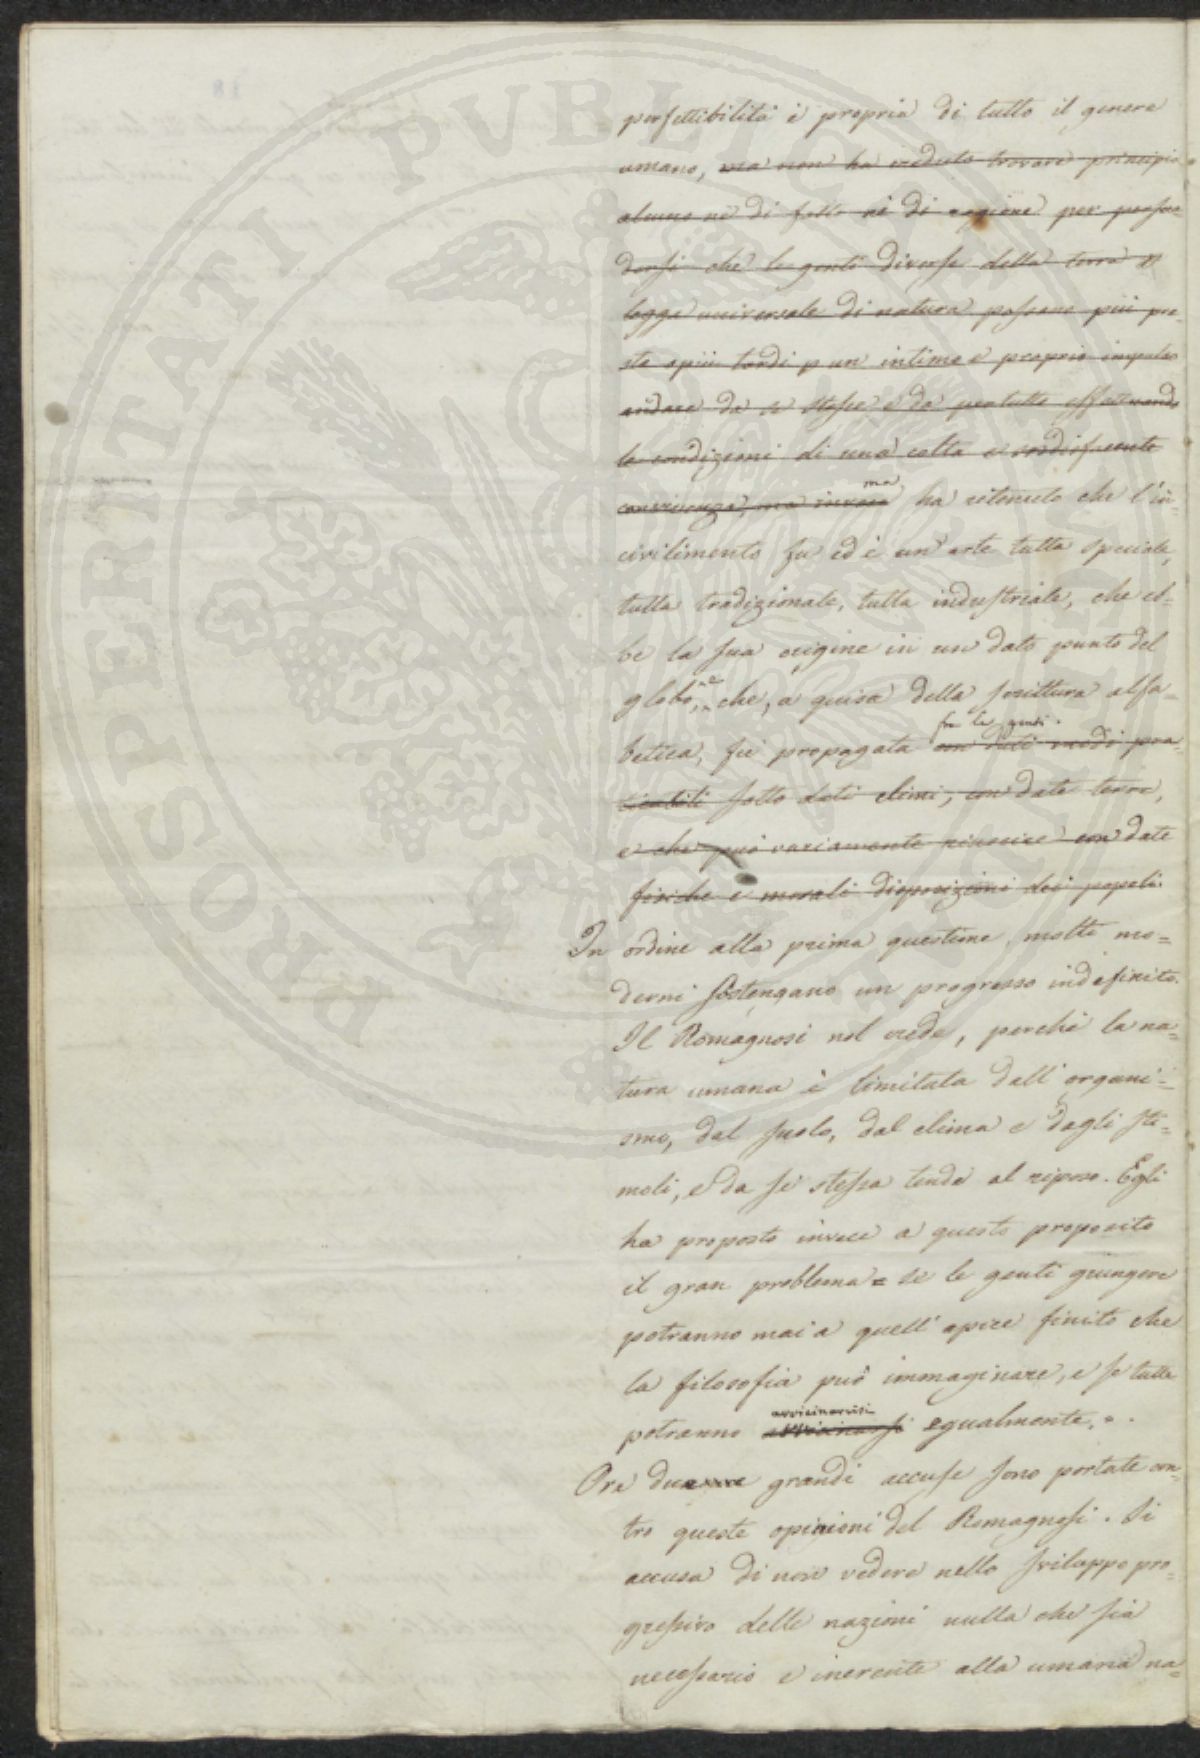 perfettibilità è propria di tutto il genere
umano, ma non ha veduto trovare principio
alcuno nè di fatto nè di ragione per persua-
dersi che le genti diverse della terra p
legge universale di natura possano più pre-
sto o più tardi p un intimo e proprio impulso
andare da se stesse e da per tutto effettuando
le condizioni di una colta e soddisfacente
convivenza, ma invece ma ha ritenuto che l'in-
civilimento fu ed è un'arte tutta speciale,
tutta tradizionale, tutta industriale, che eb-
be la sua origine in un dato punto del
globo, e che, a guisa della scrittura alfa-
betica, fu propagata fra le genti. con dati modi pra-
ticabili sotto dati climi, con date terre,
e che può variamente riuscire con date
fisiche e morali disposizioni dei popoli.
In ordine alla prima questione molti mo=
derni sostengano un progresso indefinito.
Il Romagnosi nol crede, perchè la na=
tura umana è limitata dall'organi=
smo, dal suolo, dal clima e dagli sti=
moli, e da se stessa tende al riposo. Egli
ha proposto invece a questo proposito
il gran problema = se le genti giungere
potranno mai a quell'apice finito che
la filosofia può immaginare, e se tutte
potranno avvicinarvisi avvicinarsi egualmente. = .
Ora due grandi accuse sono portate con-
tro queste opinioni del Romagnosi. Si
accusa di non vedere nello sviluppo pro-
gressivo delle nazioni nulla che sia
necessario e inerente alla umana na=
PROSPERITATI PVBLICAE